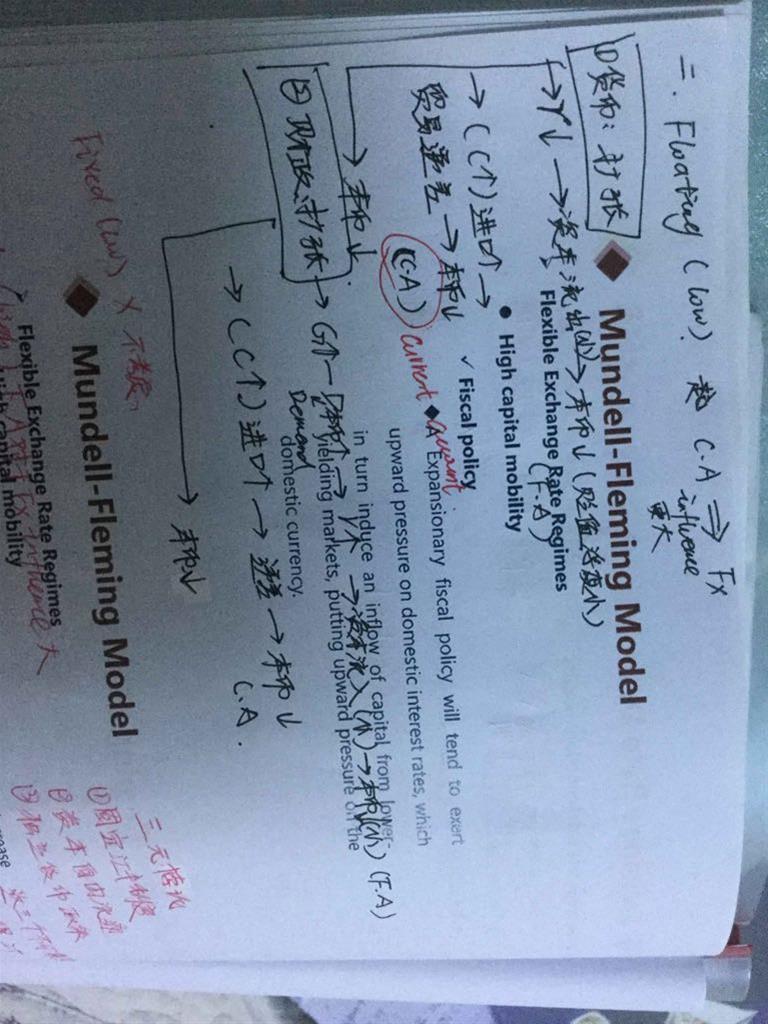 二. Floating (low). C.A ⇒ FX
influence
更大
①货币: 扩张
→ r↓ → 资本流出(小) → 本币↓ (贬值速度小)
(F.A)
→ (C↑) 进口↑ →
贸易逆差 → 本币↓
(C.A) current account.
→ 本币↓.
②财政: 扩张 → G↑ →
Demand
r↑ → 资本流入(小) → 本币(小) (F.A)
→ (C↑) 进口↑ → 逆差 → 本币↓
C.A.
→ 本币↓
◆ Mundell-Fleming Model
Flexible Exchange Rate Regimes
● High capital mobility
✓ Fiscal policy
◆ A Expansionary fiscal policy will tend to exert
upward pressure on domestic interest rates, which
in turn induce an inflow of capital from lower-
yielding markets, putting upward pressure on the
domestic currency.
Fixed (low) × 不考虑,
◆ Mundell-Fleming Model
Flexible Exchange Rate Regimes
influence 大
capital mobility
三元悖论
①固定汇率制度
②资本自由流动
③独立货币政策